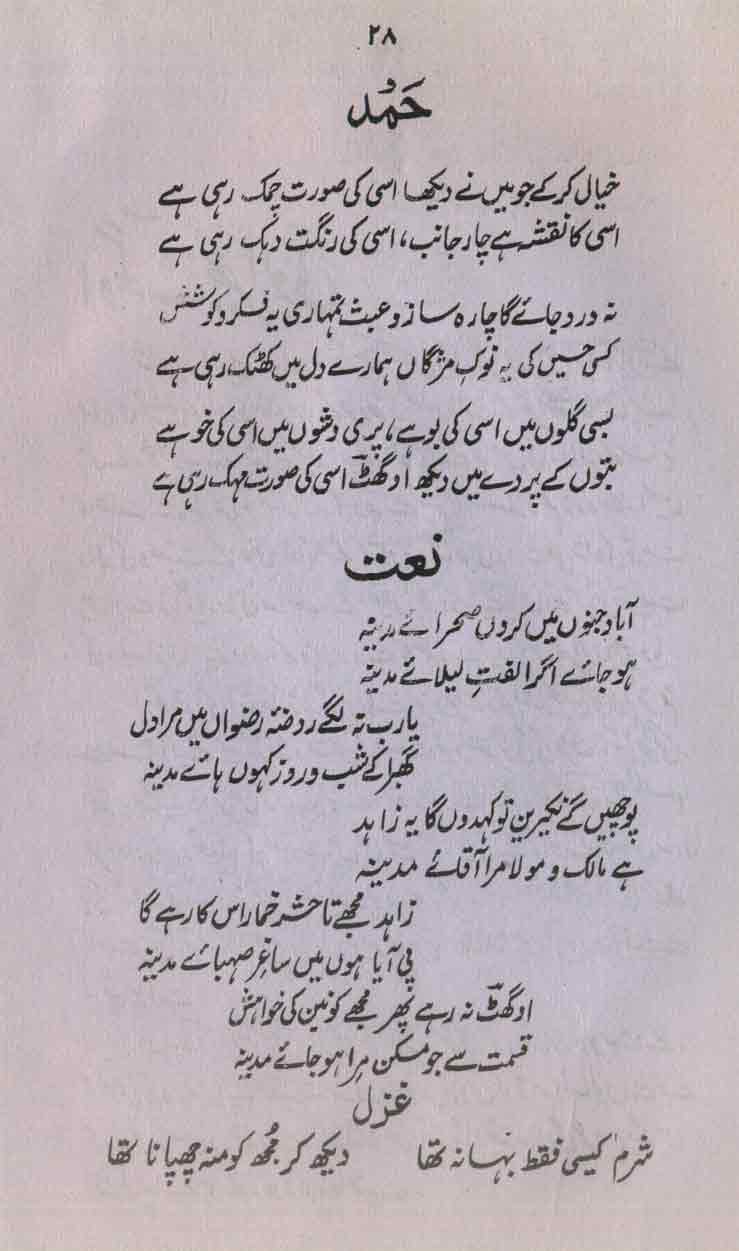 ۲۸
حَمْد
خیال کر کے جو میں نے دیکھا اسی کی صورت چمک رہی ہے
اسی کا نقشہ ہے چار جانب، اسی کی رنگت دہک رہی ہے
نہ درد جائے گا چارہ سازو عبث تمہاری یہ فکر و کوشش
کسی حسیں کی یہ نوکِ مژگاں ہمارے دل میں کھٹک رہی ہے
بسی گلوں میں اسی کی بو ہے، پری وشوں میں اسی کی خو ہے
بتوں کے پردے میں دیکھ اوگھٹؔ اسی کی صورت مہک رہی ہے
نعت
آباد جنوں میں کروں صحرائے مدینہ
ہو جائے اگر الفتِ لیلائے مدینہ
یارب نہ لگے روضۂ رضواں میں مرا دل
گھبرا کے شب و روز کہوں ہائے مدینہ
پوچھیں گے نکیرین تو کہدوں گا یہ زاہد
ہے مالک و مولا مرا آقائے مدینہ
زاہد مجھے تا حشر خمار اس کا رہے گا
پی آیا ہوں میں ساغرِ صہبائے مدینہ
اوگھٹؔ نہ رہے پھر مجھے کونین کی خواہش
قسمت سے جو مسکن مِرا ہو جائے مدینہ
غزل
شرم کیسی فقط بہانہ تھا دیکھ کر مُجھ کو منہ چھپانا تھا